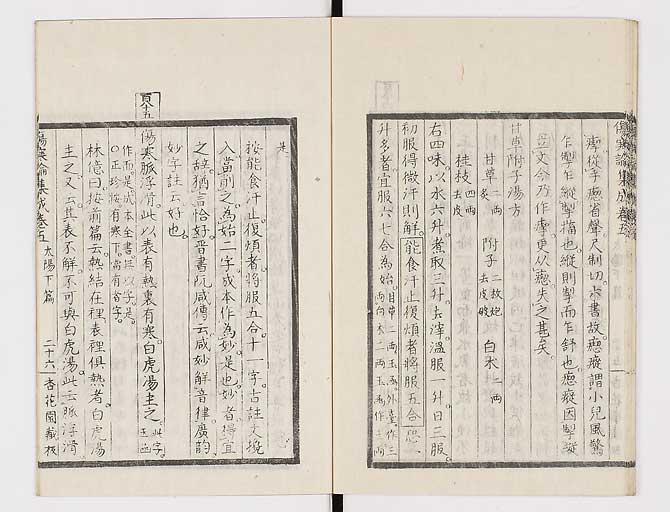 傷寒論集成卷五
瘳從手瘛省聲尺制切六書故瘛瘲謂小兒風驚
乍掣乍縱掣搐也縱則掣而乍舒也瘛瘲因掣縱
立文今乃作瘳更从瘛失之甚矣
甘草附子湯方
甘草二兩炙 附子二枚炮去皮 白朮二兩
桂枝四兩去皮
右四味以水六升煮取三升去滓溫服一升日三服
初服得微汗則解能食汗止復煩者將服五合恐一
升多者宜服六七合為始
是
按能食汗止復煩者將服五合十一字古註文攙
入當刪之為始二字成本作為妙是也妙者得宜
之辭猶言恰好晉書阮咸傳云咸妙解音律廣韵
妙字註云好也
頁十五
傷寒脈浮滑此以表有熱裏有寒白虎湯主之
作而是成本全書其以字是
○正珍按有寒下當有者字
林億曰按前篇云熱結在裡表裡俱熱者白虎湯
主之又云其表不解不可與白虎湯此云脈浮滑
傷寒論集成卷五 太陽下篇 二十六 杏花園藏板